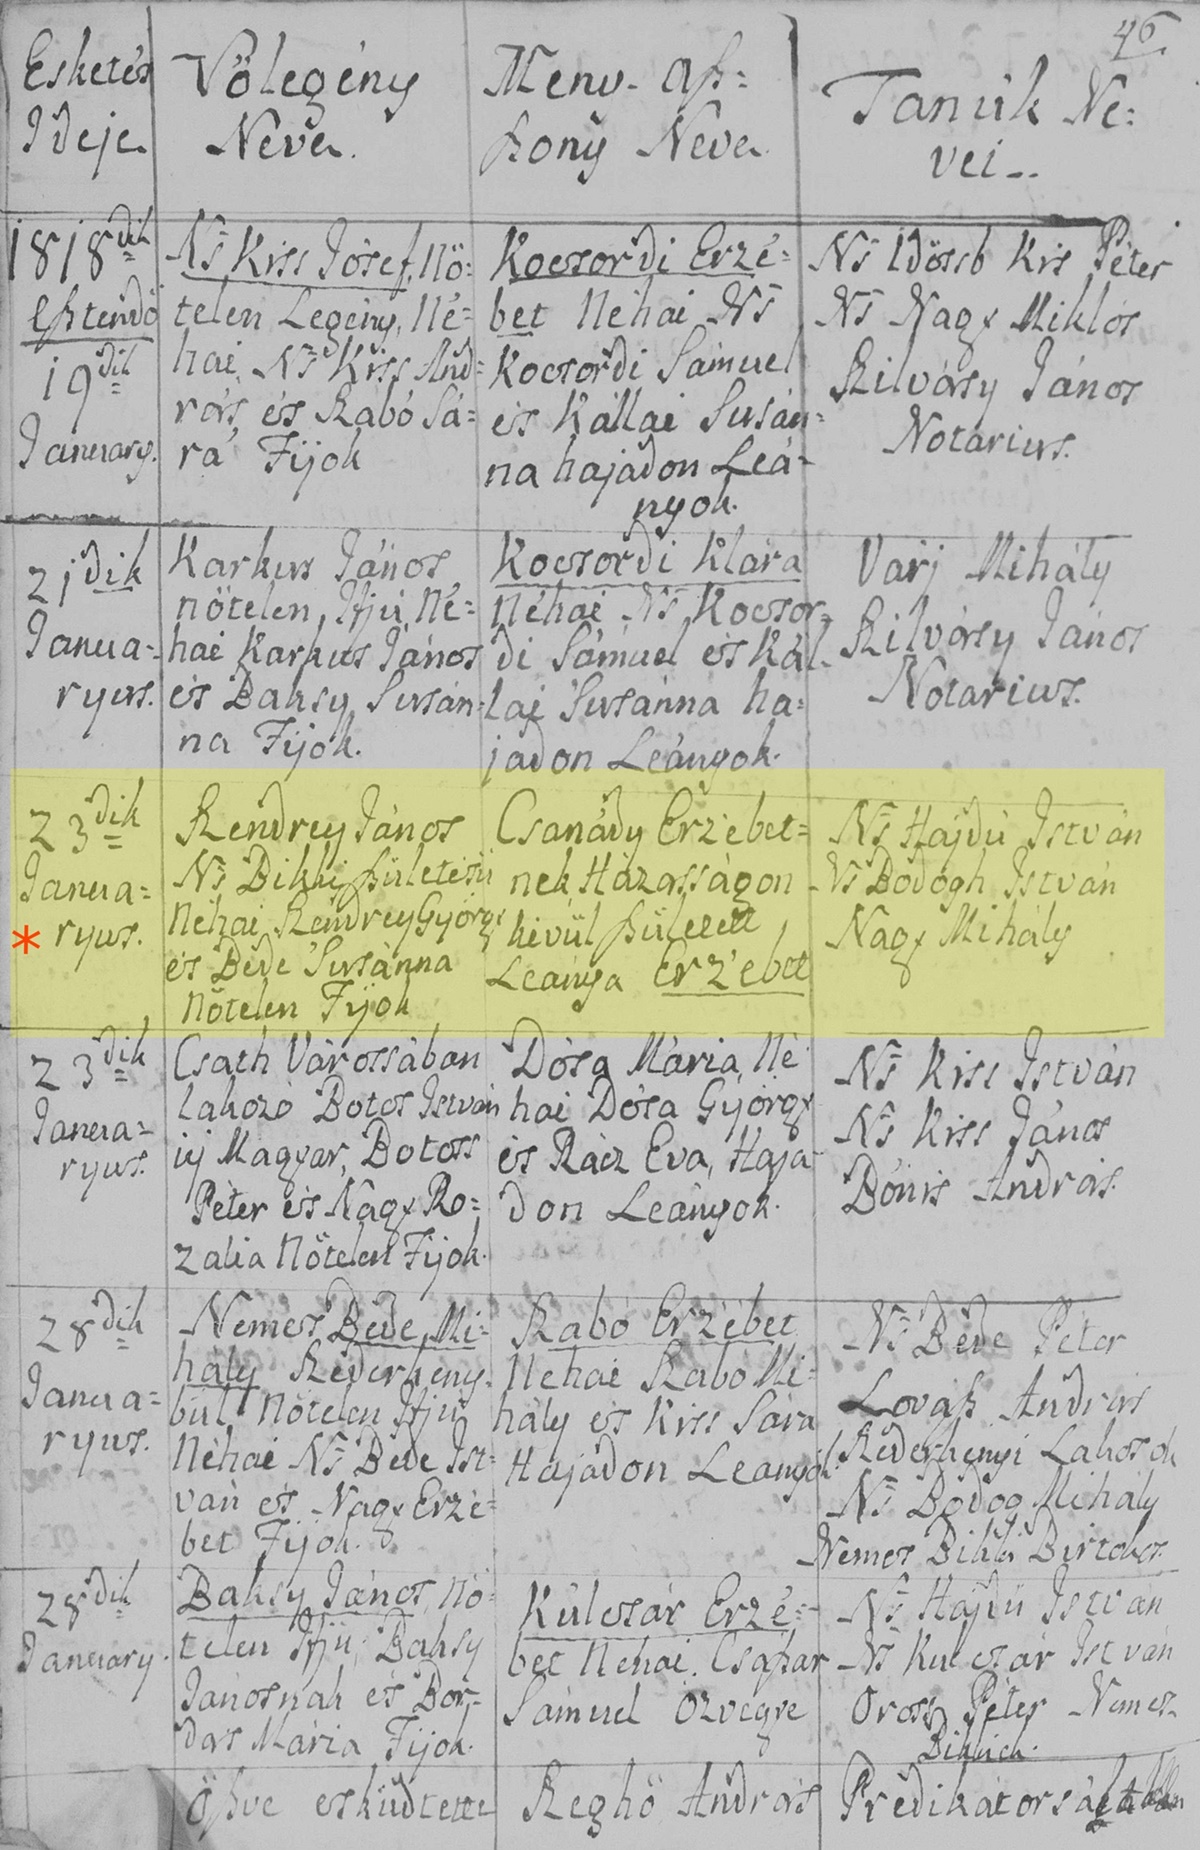 46.
Esketés
Ideje
Vőlegény
Neve
Meny-aſz=
ſzony Neve
Tanúk Ne=
vei--
1818dik
Eſztendő
19dik
Januáry.
Ns Kiss Jósef, Nő=
telen Legény, Né=
hai Ns Kiss And=
rás, és Szabó Sá=
rá Fijok
Kocsordi Erzé=
bet Néhai Ns
Kocsordi Sámuel
és Kállai Susán=
na hajadon Leá-
nyok.
Ns Idősb Kis Péter
Ns Nagy Miklós
Szilvásy János
Notárius.
21dik
Janua=
ryus.
Karkus János
nőtelen Ifjú, Né=
hai Karkus János
és Baksy Susán=
na Fijok.
Kocsordi Klára
Néhai Ns Kocsor=
di Sámuel és Kál-
lai Susánna ha=
jadon Leányok.
Varj Mihály
Szilvásy János
Notárius.
23dik
Janua=
* ryus.
Rendrey János
Ns Bikki ſzületésű
Néhai Rendrey György
és Bede Susánna
Nőtelen Fijok
Csanády Erzébet=
nek Házasságon
kivűl ſzületett
Leánya Erzébet
Ns Hajdú István
Ns Bodogh István
Nagy Mihály
23dik
Janua=
ryus.
Csath Várossában
lakozó Botos István
ifj Magyar, Botoss
Péter és Nagy Ro=
zália Nőtelen Fijok.
Dósa Mária, Né
hai Dósa György
és Rácz Eva, Haja-
don Leányok.
Ns Kiss István
Ns Kiss János
Bónis András.
28dik
Janua=
ryus.
Nemes Bede Mi=
hály Kederkény-
bűl Nőtelen Ifjú
Néhai Ns Bede Ist-
ván és Nagy Erzé-
bet Fijok.
Szabó Erzébet
Néhai Szabó Mi=
hály és Kiss Sára
Hajadon Leányok.
Ns Bede Péter
Lovaſs András
Kederkenyi Lakosok
Ns Bodog Mihály
Nemes Bikki Birtokos.
28dik
Januáry.
Baksy János, Nő-
telen Ifjú, Baksy
Jánosnak és Bor-
dás Mária Fijok.
Kúlcsár Erzé=
bet Néhai Csáſzár
Sámuel özvegye
Ns Hajdú István
Ns Kulcsár István
Orosz Péter Nemes
Bikkiek.
Öſzve esküdtette
Reghő András
Prédikátorságában